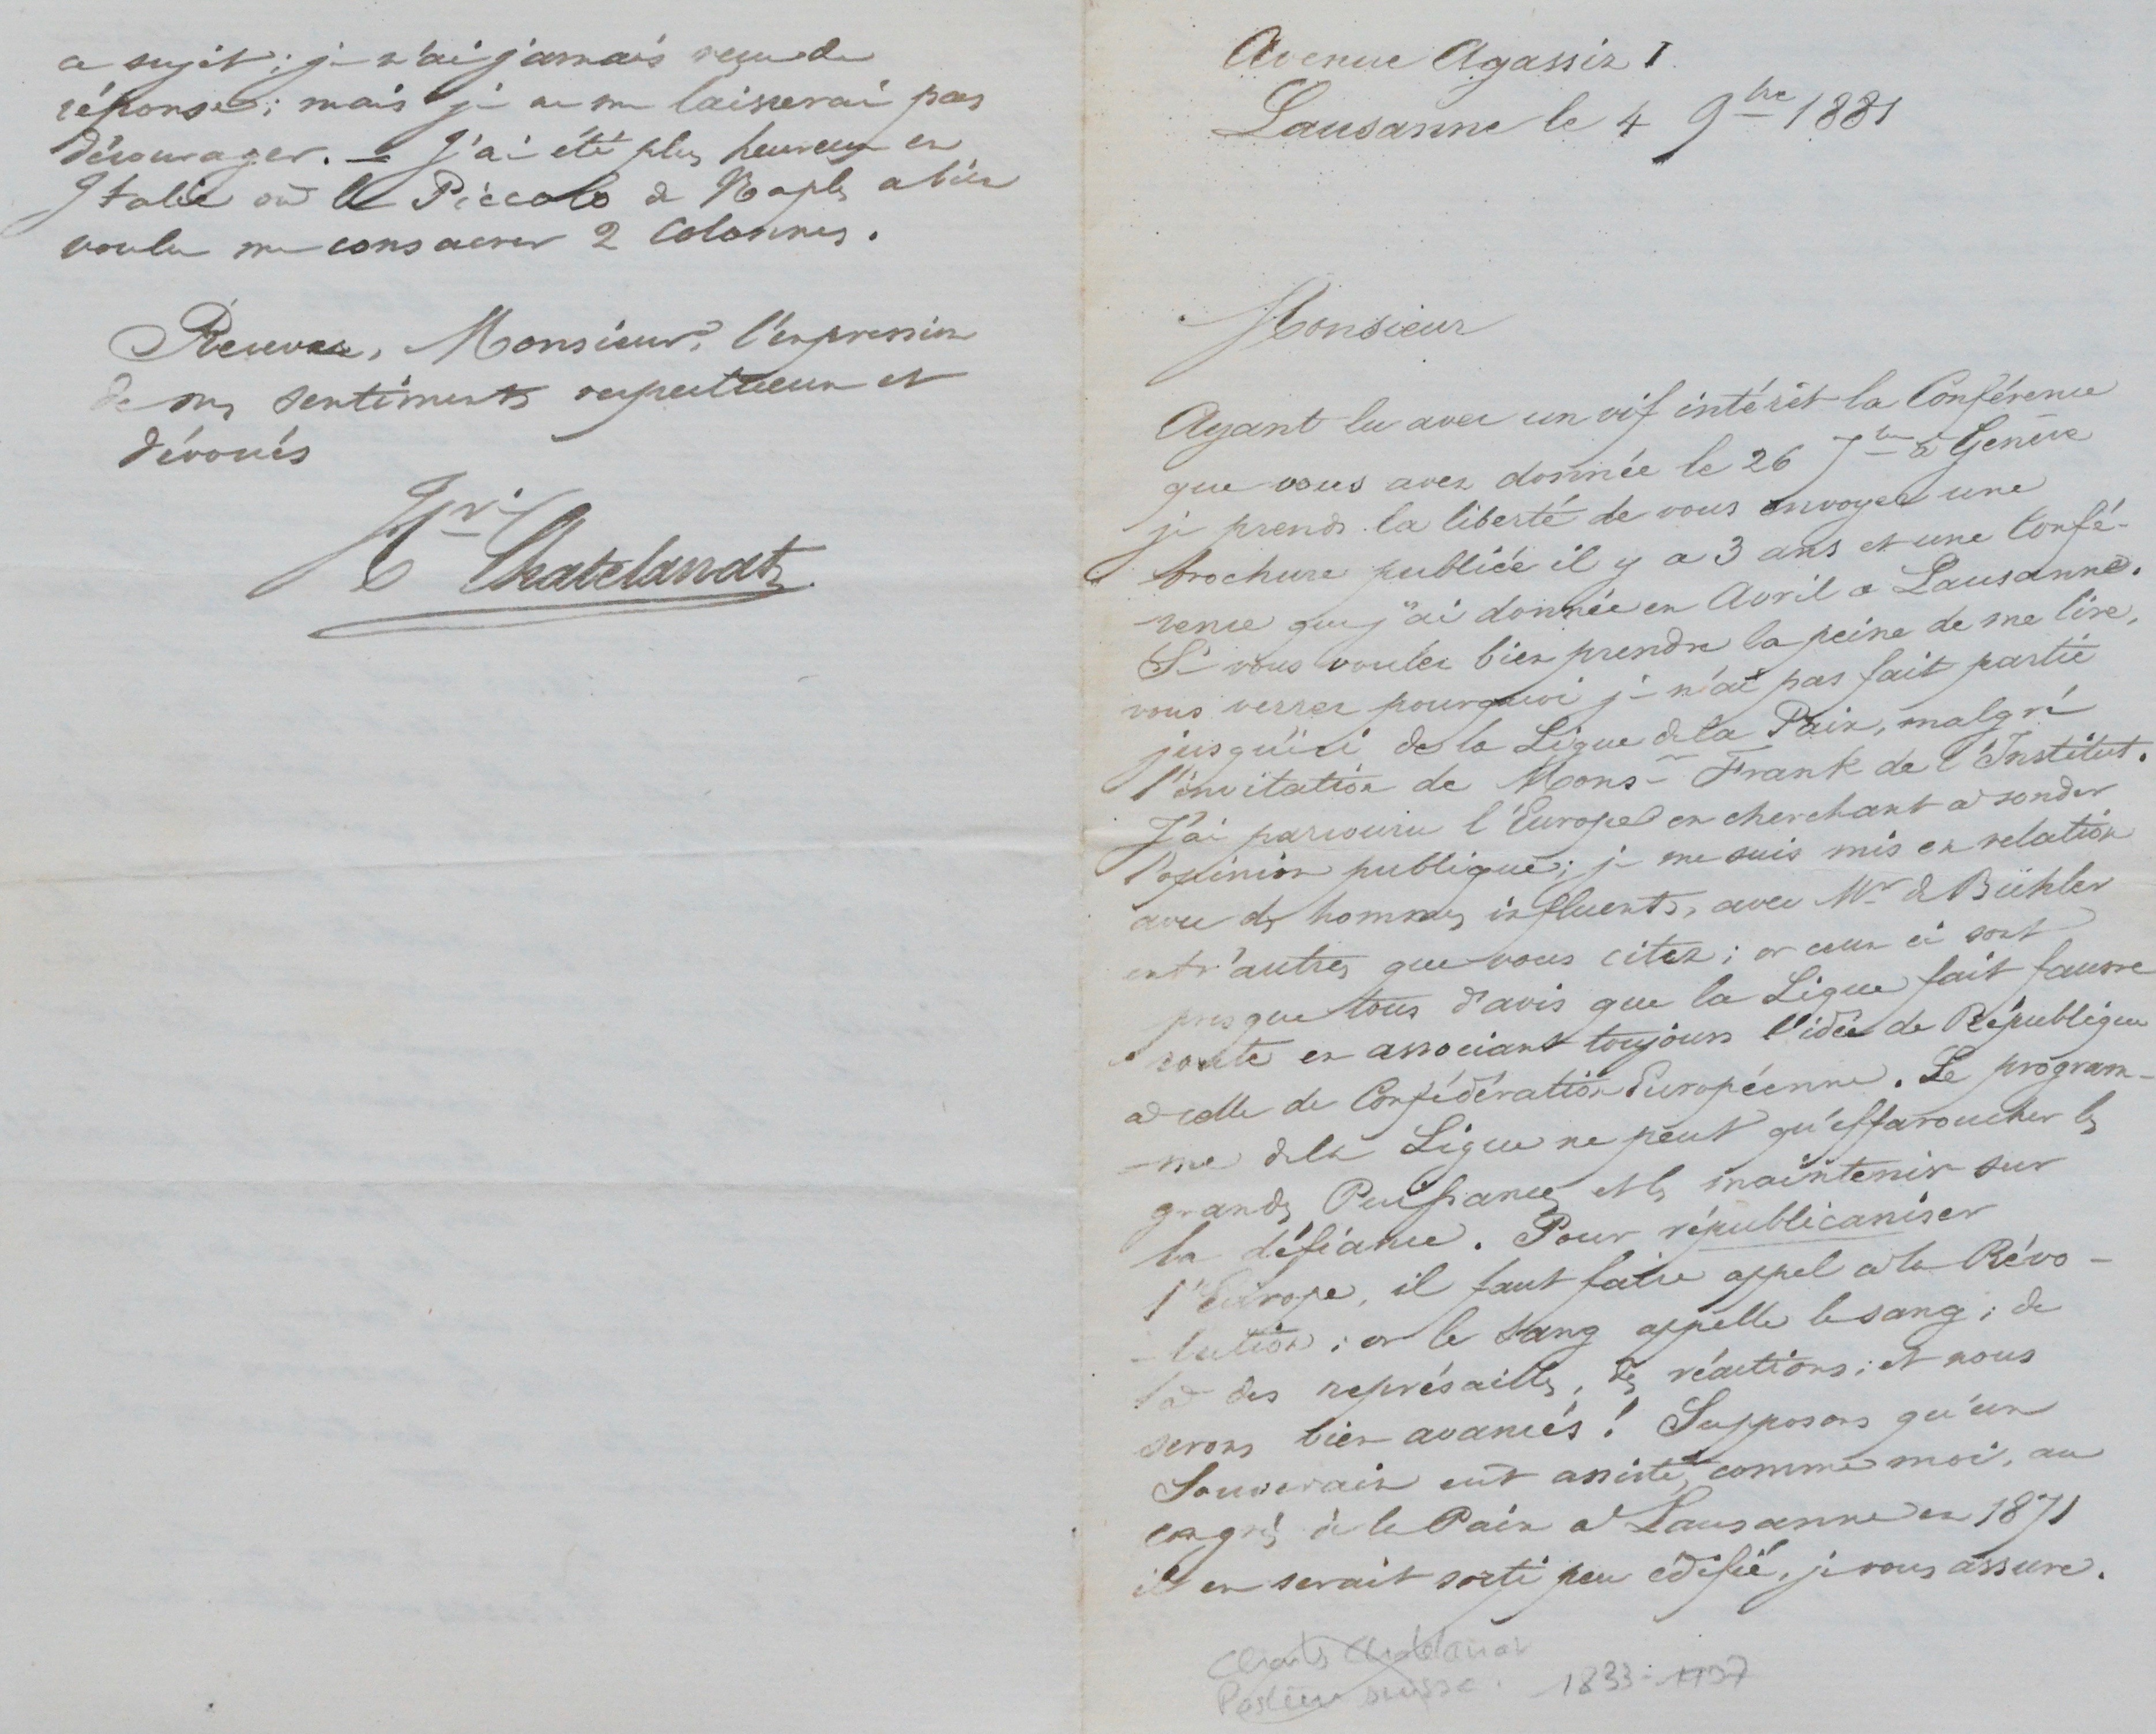 Avenue Agassiz 1.
Lausanne le 4 9bre 1881
Monsieur
Ayant lu avec un vif intérêt la Conférence
que vous avez donnée le 26 7bre à Genève
je prends la liberté de vous envoyer une
brochure publiée il y a 3 ans et une Confé-
rence que j'ai donnée en Avril à Lausanne.
Si vous voulez bien prendre la peine de me lire,
vous verrez pourquoi je n'ai pas fait partie
jusqu'ici de la Ligue de la Paix, malgré
l'invitation de Monsr Frank de l'Institut.
J'ai parcouru l'Europe en cherchant à sonder
l'opinion publique; je me suis mis en relation
avec des hommes influents, avec Mr de Bühler
entr'autres que vous citez; or ceux ci sont
presque tous d'avis que la Ligue fait fausse
route en associant toujours l'idée de République
à celle de Confédération Européenne. Le program-
-me de la Ligue ne peut qu'effaroucher les
grandes Puissances et les maintenir sur
la défiance. Pour républicaniser
l'Europe, il faut faire appel à la Révo-
-lution; or le sang appelle le sang; de
là des représailles, des réactions; et nous
serons bien avancés! Supposons qu'un
Souverain eut assisté, comme moi, au
congrès de la Paix à Lausanne en 1871
il en serait sorti peu édifié, je vous assure.
Charles Chatelanat
Pasteur suisse. 1833-1907
ce sujet; je n'ai jamais reçu de
réponse; mais je ne me laisserai pas
décourager. — J'ai été plus heureux en
Italie où le Piccolo de Naples a bien
voulu me consacrer 2 colonnes.
Recevez, Monsieur, l'expression
de mes sentiments respectueux et
dévoués
Hri Chatelanat